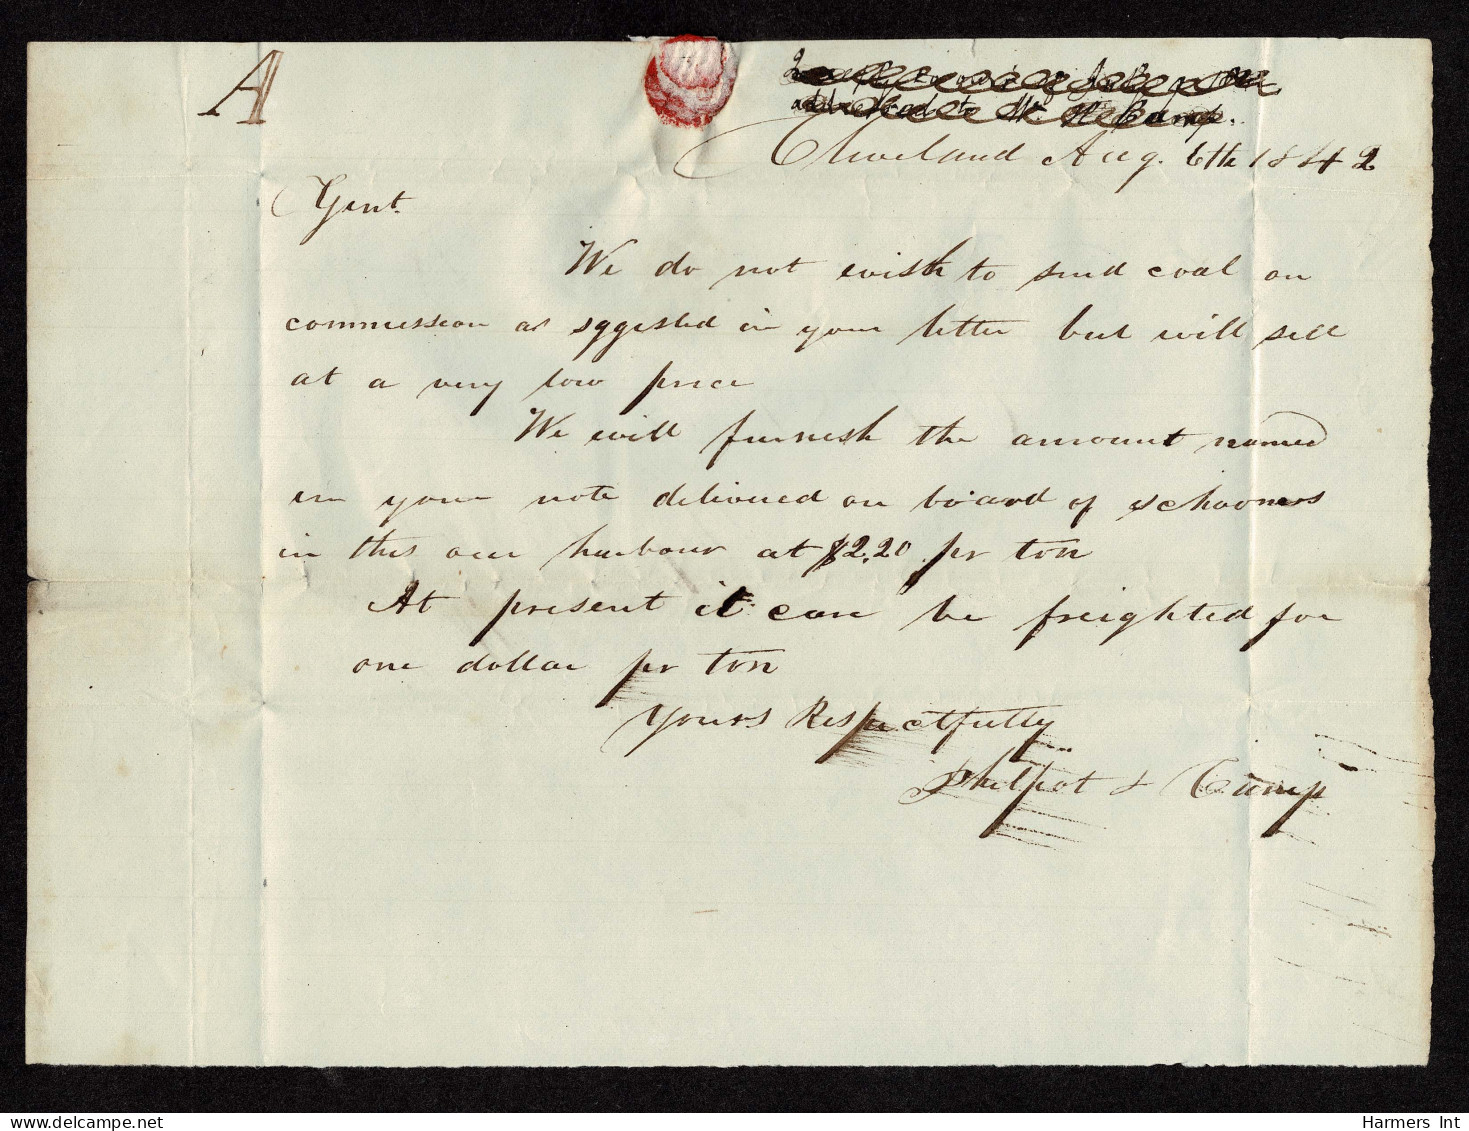 A
addressed to Mr. H Camp.
Cleveland Aug. 6th 1842
Gent.
We do not wish to send coal on
commission as sggested in your letter but will sell
at a very low price
We will furnish the amount named
in your note delivered on board of schooners
in this our harbour at $2.20 pr ton
At present it can be freighted for
one dollar pr ton
Yours Respectfully
Philpot & Camp
Harmers Int